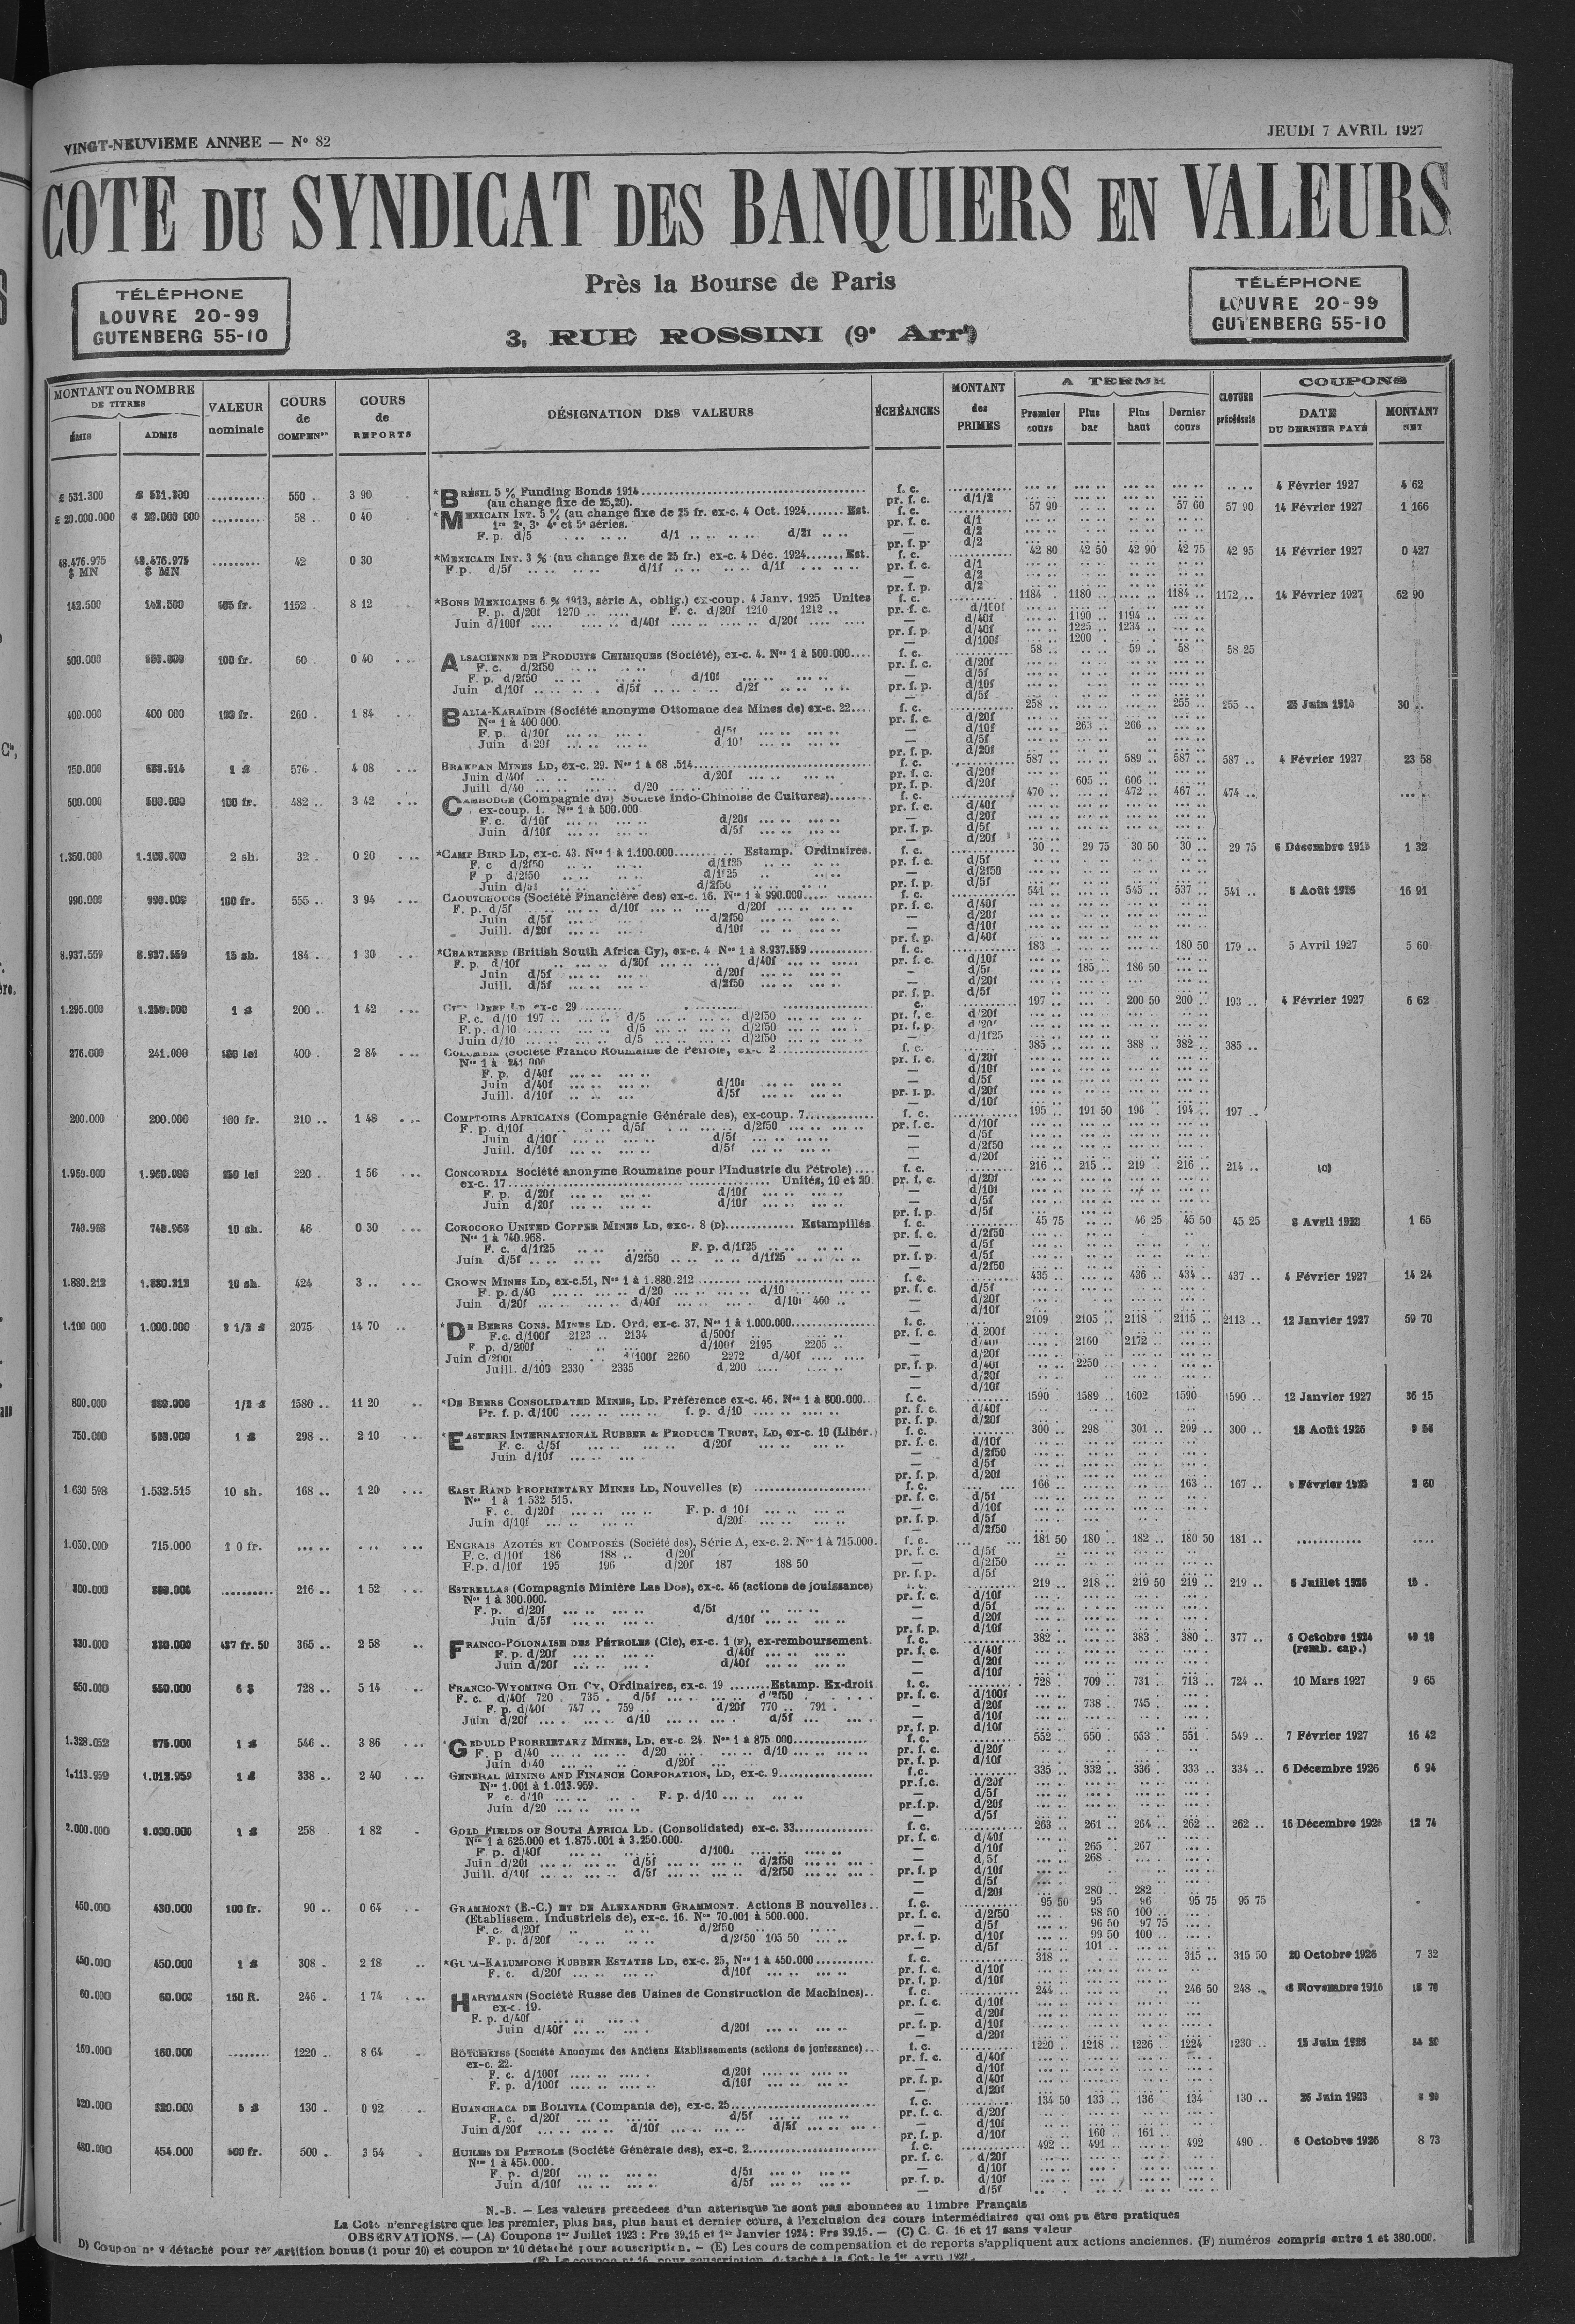 VINGT-NEUVIEME ANNEE — N° 82
JEUDI 7 AVRIL 1927
COTE DU SYNDICAT DES BANQUIERS EN VALEURS
Près la Bourse de Paris
3, RUE ROSSINI (9e Arrt)
TÉLÉPHONE
LOUVRE 20-99
GUTENBERG 55-10
TÉLÉPHONE
LOUVRE 20-99
GUTENBERG 55-10
MONTANT ou NOMBRE DE TITRES
ÉMIS ADMIS
VALEUR nominale
COURS de COMPENon
COURS de REPORTS
DÉSIGNATION DES VALEURS
ÉCHÉANCES
MONTANT des PRIMES
A TERME
Premier cours
Plus bas
Plus haut
Dernier cours
CLOTURE précédente
COUPONS
DATE DU DERNIER PAYÉ
MONTANT NET
£ 531.300 550 .. 3 90 *BRÉSIL 5 % Funding Bonds 1914 f. c. 4 Février 1927 4 62
(au change fixe de 25,20). pr. f. c. d/1/2
£ 20.000.000 58 .. 0 40 *MEXICAIN INT. 5 % (au change fixe de 25 fr. ex-c. 4 Oct. 1924 Est. f. c. 57 90 57 60 57 90 14 Février 1927 1 166
1re 2e, 3e 4e et 5e séries. pr. f. c. d/1
48.476.975 $ MN 48.476.975 $ MN 42 0 30 *MEXICAIN INT. 3 % (au change fixe de 25 fr.) ex-c. 4 Déc. 1924 Est. f. c. 42 80 42 50 42 90 42 75 42 95 14 Février 1927 0 427
F.p. d/5f d/1f d/1f pr. f. c. d/1
142.500 142.500 1152 8 12 *BONS MEXICAINS 6 % 1913, série A, oblig.) ex-coup. 4 Janv. 1925 Unites f. c. 1184 1180 1184 1172 14 Février 1927 62 90
F. p. d/20f 1270 F. c. d/20f 1210 1212 pr. f. c. d/100f
Juin d/100f d/40f d/20f — d/40f 1190 1194
pr. f. p. d/40f 1225 1234
— d/100f 1200
500.000 100 fr. 60 0 40 ALSACIENNE DE PRODUITS CHIMIQUES (Société), ex-c. 4. Nos 1 à 500.000 f. c. 58 59 58 58 25
F. c. d/2f50 pr. f. c. d/20f
F. p. d/2f50 d/10f — d/5f
Juin d/10f d/5f d/2f pr. f. p. d/10f
400.000 400 000 260 1 84 BALIA-KARAÏDIN (Société anonyme Ottomane des Mines de) ex-c. 22 f. c. 258 255 255 30
Nos 1 à 400 000. pr. f. c. d/20f
F. p. d/10f d/5f — d/10f 263 266
Juin d/20f d/10f — d/5f
750.000 576 4 08 BRAKPAN MINES LD, ex-c. 29. f. c. 587 589 587 587 4 Février 1927 23 58
Juin d/40f d/20f pr. f. c. d/20f
Juill d/40 d/20 pr. f. p. d/20f 605 606
500.000 500.000 100 fr. 482 3 42 CAMBODGE (Compagnie du) Société Indo-Chinoise de Cultures) f. c. 470 472 467 474
ex-coup. 1. Nos 1 à 500.000 pr. f. c. d/40f
F. c. d/10f d/20f — d/20f
Juin d/10f d/5f pr. f. p. d/5f
1.350.000 2 sh. 32 0 20 *CAMP BIRD LD, ex-c. 43. Nos 1 à 1.100.000 Estamp. Ordinaires. f. c. 30 29 75 30 50 30 29 75 1 32
F. c d/2f50 d/1f25 pr. f. c. d/5f
F p d/2f50 d/1f25 — d/2f50
Juin d/5f d/2f50 pr. f. p. d/5f
990.000 990.000 100 fr. 555 3 94 CAOUTCHOUCS (Société Financière des) ex-c. 16. Nos 1 à 990.000 f. c. 541 545 537 541 5 Août 1926 16 91
F. p. d/5f d/10f d/20f pr. f. c. d/40f
Juin d/5f d/2f50 — d/20f
Juill. d/20f d/10f — d/10f
8.937.559 8.937.559 15 sh. 184 1 30 *CHARTERED (British South Africa Cy), ex-c. 4 Nos 1 à 8.937.559 f. c. 183 180 50 179 5 Avril 1927 5 60
F. p. d/10f d/20f d/40f pr. f. c. d/10f
Juin d/5f d/20f — d/5f 185 186 50
Juill. d/5f d/2f50 — d/20f
1.295.000 200 1 42 CITY DEEP LD ex-c 29 197 200 50 200 193 4 Février 1927 6 62
F.c. d/10 197 d/5 d/2f50 pr. f. c. d/20f
F. p. d/10 d/5 d/2f50 pr. f. p.
Juin d/10 d/5 d/2f50 — d/1f25
276.000 241.000 400 2 84 COLOMBIA (Société Franco Roumaine de Pétrole, ex-c 2 f. c. 385 388 382 385
Nos 1 à 241.000 pr. f. c. d/20f
F. p. d/40f — d/10f
Juin d/40f d/10f — d/5f
Juill. d/10f d/5f d/20f
200.000 200.000 100 fr. 210 1 48 COMPTOIRS AFRICAINS (Compagnie Générale des), ex-coup. 7 f. c. 195 191 50 196 194 197
F. p. d/10f d/5f d/2f50 pr. f. c. d/10f
Juin d/10f d/5f — d/5f
Juill. d/10f d/5f — d/2f50
1.960.000 1.960.000 220 1 56 CONCORDIA Société anonyme Roumaine pour l'Industrie du Pétrole) f. c. 216 215 219 216 214 (C)
ex-c. 17 Unités, 10 et 20. pr. f. c. d/20f
F. p. d/20f d/10f — d/10f
Juin d/20f d/10f — d/5f
740.968 740.968 10 sh. 46 0 30 COROCORO UNITED COPPER MINES LD, ex-c. 8 (D) Estampillés f. c. 45 75 46 25 45 50 45 25 1 65
N° 1 à 740.968. pr. f. c. d/2f50
F. c. d/1f25 F. p. d/1f25 — d/5f
Juin d/5f d/2f50 d/1f25 pr. f. p. d/5f
1.880.212 1.880.212 10 sh. 424 3 CROWN MINES LD, ex-c.51, Nos 1 à 1.880.212 f. c. 435 436 434 437 4 Février 1927 14 24
F. p. d/40 d/20 d/10 pr. f. c. d/5f
Juin d/20f d/40f d/10f 460 — d/20f
1.100 000 1.000.000 2075 14 70 *DE BEERS CONS. MINES LD. Ord. ex-c. 37. Nos 1 à 1.000.000 f. c. 2109 2105 2118 2115 2113 12 Janvier 1927 59 70
F.c. d/100f 2123 2134 d/500f pr. f. c. d/200f
F. p. d/200f d/100f 2195 2205 — d/40f 2160 2172
Juin d/200f d/100f 2260 2272 d/40f — d/20f
Juill. d/100 2330 2335 d/200 pr. f. p. d/40f 2250
800.000 1580 11 20 *DE BEERS CONSOLIDATED MINES, LD. Préférence ex-c. 46. Nos 1 à 800.000 f. c. 1590 1589 1602 1590 1590 12 Janvier 1927 36 15
Pr. f. p. d/100 f. p. d/10 pr. f. c. d/40f
750.000 298 2 10 *EASTERN INTERNATIONAL RUBBER & PRODUCE TRUST, LD, ex-c. 10 (Libér.) f. c. 300 298 301 299 300 18 Août 1926
F. c. d/5f d/20f pr. f. c. d/10f
Juin d/10f — d/2f50
1 630 598 1.532.515 10 sh. 168 1 20 EAST RAND PROPRIETARY MINES LD, Nouvelles (E) f. c. 166 163 167
Nos 1 à 1 532 515. pr. f. c. d/5f
F. c. d/20f F. p. d 10f — d/10f
Juin d/10f d/20f pr. f. p. d/5f
1.050.000 715.000 1 0 fr. ENGRAIS AZOTÉS ET COMPOSÉS (Société des), Série A, ex-c. 2. Nos 1 à 715.000. f. c. 181 50 180 182 180 50 181
F. c. d/10f 186 188 d/20f pr. f. c. d/5f
F.p. d/10f 195 196 d/20f 187 188 50 — d/2f50
300.000 216 1 52 ESTRELLAS (Compagnie Minière Las Dos), ex-c. 46 (actions de jouissance) 219 218 219 50 219 219 6 Juillet 1926
Nos 1 à 300.000. pr. f. c. d/10f
F. p. d/20f d/5f — d/5f
Juin d/5f d/10f — d/20f
330.000 330.000 437 fr. 50 365 2 58 FRANCO-POLONAISE DES PÉTROLES (Cie), ex-c. 1 (F), ex-remboursement. f. c. 382 383 380 377 Octobre 1924
F. p. d/20f d/40f pr. f. c. d/40f (remb. cap.)
Juin d/20f d/40f — d/20f
550.000 550.000 6 $ 728 5 14 FRANCO-WYOMING OIL CY, Ordinaires, ex-c. 19 Estamp. Ex-droit f. c. 728 709 731 713 724 10 Mars 1927 9 65
F. c. d/40f 720 735 d/5f d/2f50 pr. f. c. d/100f
F. p. d/40f 747 759 d/20f 770 791 — d/20f 738 745
Juin d/20f d/10 d/5f — d/10f
1.328.052 875.000 546 3 86 *GEDULD PROPRIETARY MINES, LD. ex-c. 24. Nos 1 à 875 000 f. c. 552 550 553 551 549 7 Février 1927 16 42
F. p d/40 d/20 d/10 pr. f. c. d/20f
Juin d/40 d/20f pr. f. p. d/10f
1.113.959 1.013.959 338 2 40 GENERAL MINING AND FINANCE CORPORATION, LD, ex-c. 9 f.c. 335 332 336 333 334 6 Décembre 1926 6 94
Nos 1.001 à 1.013.959. pr.f.c. d/20f
F. c. d/10 F. p. d/10 — d/5f
Juin d/20 pr.f.p. d/20f
258 1 82 GOLD FIELDS OF SOUTH AFRICA LD. (Consolidated) ex-c. 33 f. c. 263 261 264 262 262 16 Décembre 1926 12 74
Nos 1 à 625.000 et 1.875.001 à 3.250.000. pr. f. c. d/40f
F. p. d/40f d/100f — d/10f 265 267
Juin d/20f d/5f d/2f50 — d/5f 268
Juill. d/10f d/5f d/2f50 pr. f. p d/10f
— d/20f 280 282
450.000 430.000 100 fr. 90 0 64 GRAMMONT (E.-C.) ET DE ALEXANDRE GRAMMONT. Actions B nouvelles f. c. 95 50 95 96 95 75 95 75
(Etablissem. Industriels de), ex-c. 16. Nos 70.001 à 500.000. pr. f. c. d/2f50 98 50 100
F. c. d/20f d/2f50 — d/5f 96 50 97 75
F. p. d/20f d/2f50 105 50 pr. f. p. d/10f 99 50 100
— d/5f 101
450.000 450.000 308 2 18 *GULA-KALUMPONG RUBBER ESTATES LD, ex-c. 25, Nos 1 à 450.000 f. c. 318 315 315 50 20 Octobre 1926 7 32
F. c. d/20f d/10f pr. f. c. d/10f
60.000 60.000 150 R. 246 1 74 HARTMANN (Société Russe des Usines de Construction de Machines) f. c. 244 246 50 248 Novembre 1916
ex-c. 19. pr. f. c. d/10f
F. p. d/40f — d/20f
Juin d/40f d/20f pr. f. p. d/10f
160.000 160.000 1220 8 64 HOTCHKISS (Société Anonyme des Anciens Etablissements (actions de jouissance) f. c. 1220 1218 1226 1224 1230 15 Juin 1926
ex-c. 22. pr. f. c. d/40f
F. c. d/100f d/20f — d/10f
F. p. d/100f d/10f pr. f. p. d/40f
320.000 320.000 130 0 92 HUANCHACA DE BOLIVIA (Compania de), ex-c. 25 f. c. 134 50 133 136 134 130 Juin 1923
F. c. d/20f d/5f pr. f. c. d/20f
Juin d/20f d/10f d/5f — d/10f
pr. f. p. d/10f 160 161
480.000 454.000 500 3 54 HUILES DE PETROLE (Société Générale des), ex-c. 2 f. c. 492 491 492 490 6 Octobre 1926 8 73
Nos 1 à 454.000. pr. f. c. d/20f
F. p. d/20f d/5f — d/10f
Juin d/10f d/5f pr. f. p. d/10f
N.-B. — Les valeurs précédées d'un astérisque ne sont pas abonnées au Timbre Français
La Cote n'enregistre que les premier, plus bas, plus haut et dernier cours, à l'exclusion des cours intermédiaires qui ont pu être pratiqués
OBSERVATIONS. — (A) Coupons 1er Juillet 1923 : Frs 39,15 et 1er Janvier 1924 : Frs 39,15. — (C) C. C. 16 et 17 sans valeur
D) Coupon n° 9 détaché pour répartition bonus (1 pour 10) et coupon n° 10 détaché pour souscription. — (E) Les cours de compensation et de reports s'appliquent aux actions anciennes. (F) numéros compris entre 1 et 380.000.